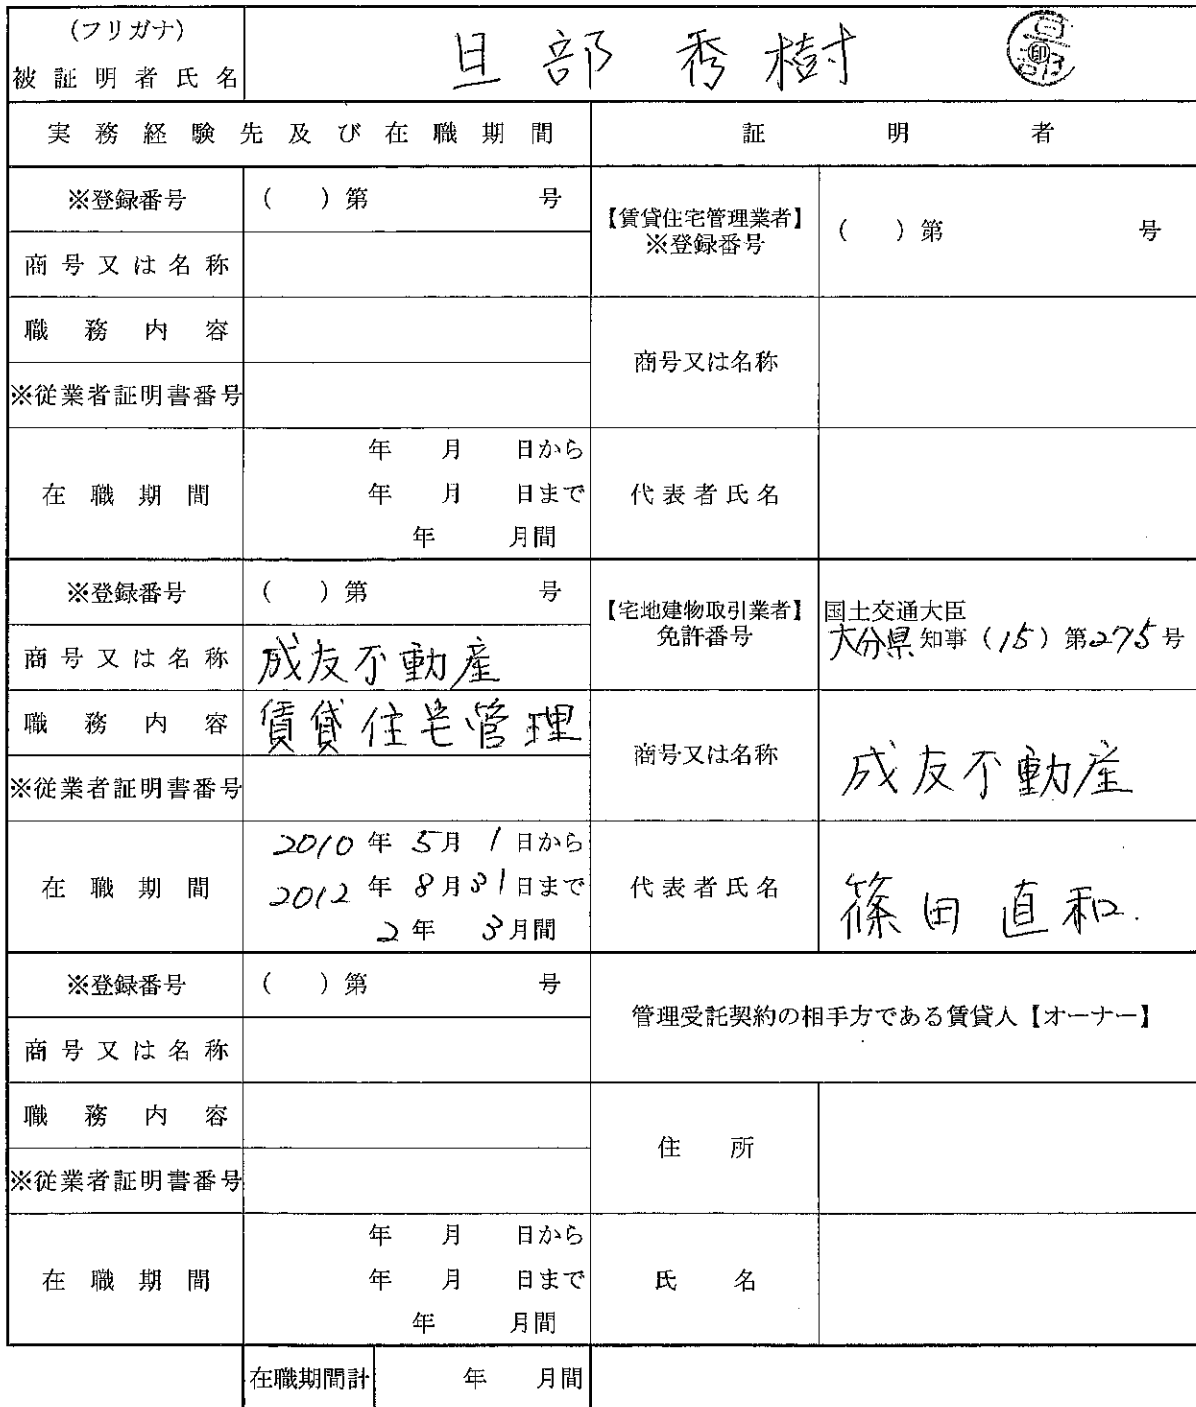 (フリガナ)
被証明者氏名
旦部 秀樹
印
実務経験先及び在職期間
証明者
※登録番号
( ) 第 号
【賃貸住宅管理業者】
※登録番号
( ) 第 号
商号又は名称
職務内容
商号又は名称
※従業者証明書番号
在職期間
年 月 日から
年 月 日まで
年 月間
代表者氏名
※登録番号
( ) 第 号
【宅地建物取引業者】
免許番号
国土交通大臣
大分県知事 (15) 第275号
商号又は名称
成友不動産
職務内容
賃貸住宅管理
商号又は名称
成友不動産
※従業者証明書番号
在職期間
2010年 5月 1日から
2012年 8月31日まで
2年 3月間
代表者氏名
篠田 直和.
※登録番号
( ) 第 号
管理受託契約の相手方である賃貸人【オーナー】
商号又は名称
職務内容
住所
※従業者証明書番号
在職期間
年 月 日から
年 月 日まで
年 月間
氏名
在職期間計
年 月間